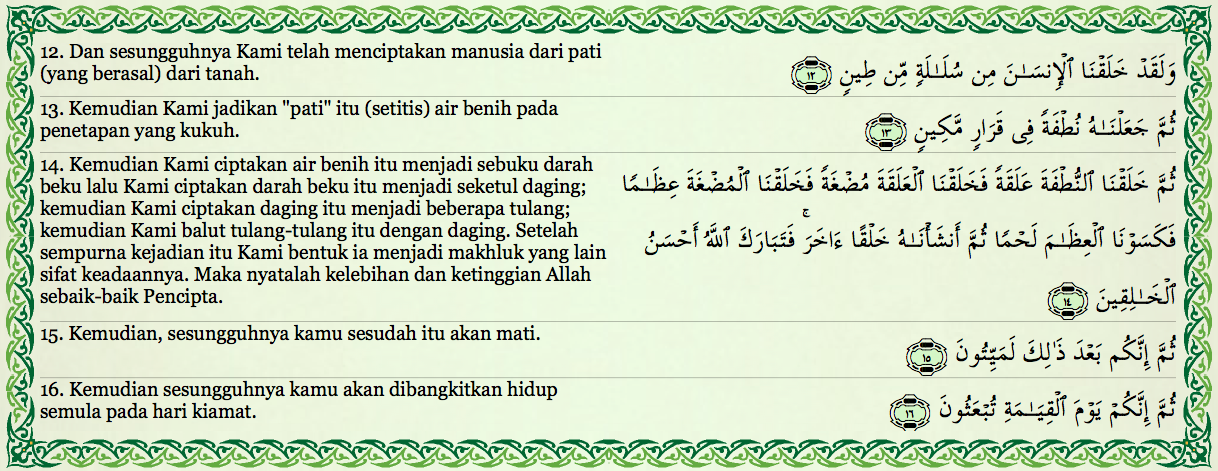 12. Dan sesungguhnya Kami telah menciptakan manusia dari pati
(yang berasal) dari tanah.
وَلَقَدۡ خَلَقۡنَا ٱلۡإِنسَـٰنَ مِن سُلَـٰلَةٍ۬ مِّن طِينٍ۬ ١٢
13. Kemudian Kami jadikan "pati" itu (setitis) air benih pada
penetapan yang kukuh.
ثُمَّ جَعَلۡنَـٰهُ نُطۡفَةً۬ فِى قَرَارٍ۬ مَّكِينٍ۬ ١٣
14. Kemudian Kami ciptakan air benih itu menjadi sebuku darah
beku lalu Kami ciptakan darah beku itu menjadi seketul daging;
kemudian Kami ciptakan daging itu menjadi beberapa tulang;
kemudian Kami balut tulang-tulang itu dengan daging. Setelah
sempurna kejadian itu Kami bentuk ia menjadi makhluk yang lain
sifat keadaannya. Maka nyatalah kelebihan dan ketinggian Allah
sebaik-baik Pencipta.
ثُمَّ خَلَقۡنَا ٱلنُّطۡفَةَ عَلَقَةً۬ فَخَلَقۡنَا ٱلۡعَلَقَةَ مُضۡغَةً۬ فَخَلَقۡنَا ٱلۡمُضۡغَةَ عِظَـٰمً۬ا
فَكَسَوۡنَا ٱلۡعِظَـٰمَ لَحۡمً۬ا ثُمَّ أَنشَأۡنَـٰهُ خَلۡقًا ءَاخَرَ‌ۚ فَتَبَارَكَ ٱللَّهُ أَحۡسَنُ
ٱلۡخَـٰلِقِينَ ١٤
15. Kemudian, sesungguhnya kamu sesudah itu akan mati.
ثُمَّ إِنَّكُم بَعۡدَ ذَٲلِكَ لَمَيِّتُونَ ١٥
16. Kemudian sesungguhnya kamu akan dibangkitkan hidup
semula pada hari kiamat.
ثُمَّ إِنَّكُمۡ يَوۡمَ ٱلۡقِيَـٰمَةِ تُبۡعَثُونَ ١٦